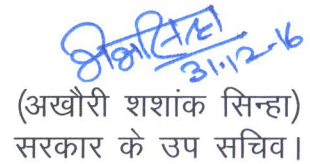 31.12-16
(अखौरी शशांक सिन्हा)
सरकार के उप सचिव।